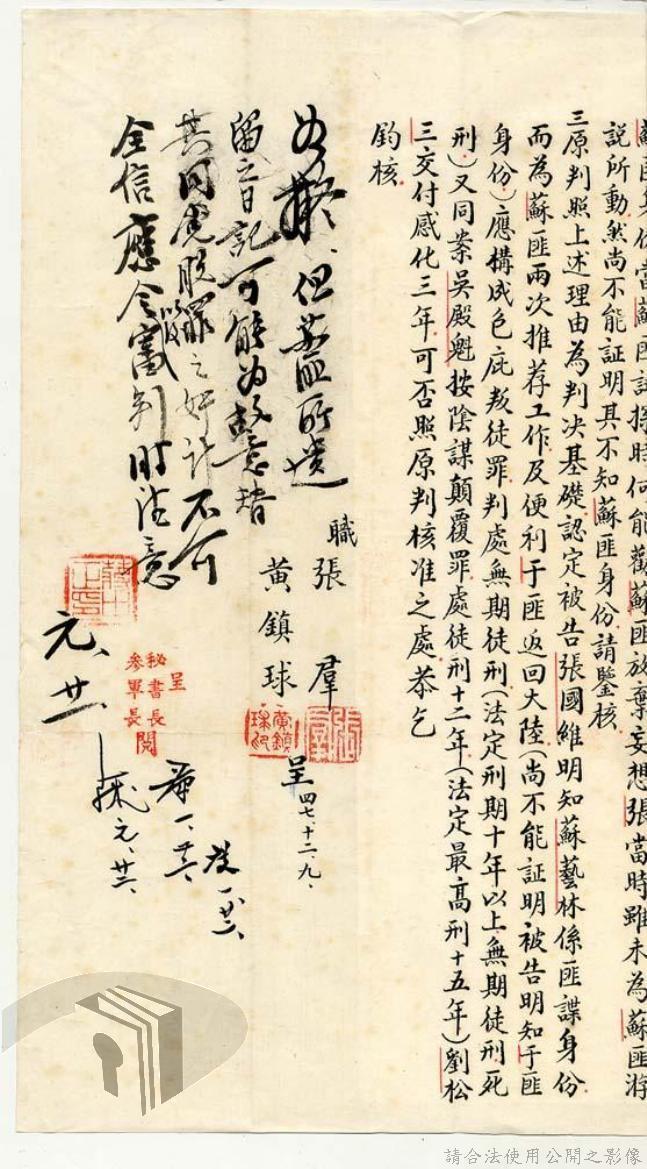 蘇匪身份當蘇匪試探時何能勸蘇匪放棄妄想張當時雖未為蘇匪游
說所動然尚不能証明其不知蘇匪身份請鑒核
三原判照上述理由為判決基礎認定被告張國維明知蘇藝林係匪諜身份
而為蘇匪兩次推荐工作及便利于匪返回大陸(尚不能証明被告明知于匪
身份)應構成包庇叛徒罪判處無期徒刑(法定刑期十年以上無期徒刑死
刑)又同案吳殿魁按陰謀顛覆罪處徒刑十二年(法定最高刑十五年)劉松
三交付感化三年可否照原判核准之處恭乞
鈞核
職張羣
黃鎮球
呈四七、十二、九、
如擬、但蘇匪所遺
留之日記可能為故意替
其同党脫罪之奸計不可
全信應令嚴審判時注意
蔣中正印
元、廿一
呈
秘書長
參軍長
閱
元、廿二、
請合法使用公開之影像